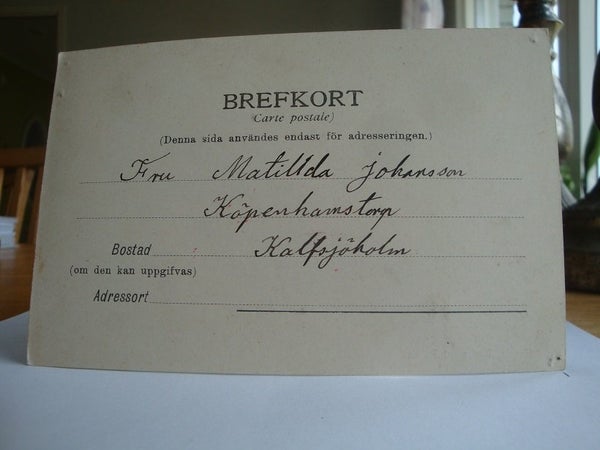 BREFKORT
(Carte postale)
(Denna sida användes endast för adresseringen.)
Fru Matillda Johansson
Köpenhamstorp
Bostad Kalfsjöholm
(om den kan uppgifvas)
Adressort